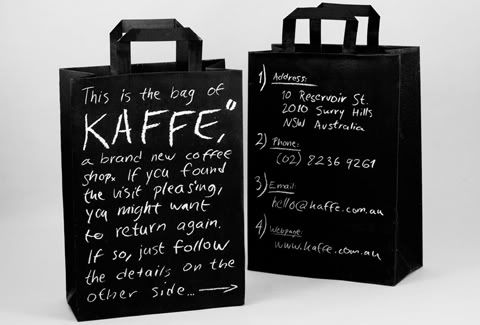 This is the bag of
KAFFE,"
a brand new coffee
shop. If you found
the visit pleasing,
you might want
to return again.
If so, just follow
the details on the
other side...
1) Address:
10 Reservoir St.
2010 Surry Hills
NSW Australia
2) Phone:
(02) 8236 9261
3) Email:
hello@kaffe.com.au
4) Webpage:
www.kaffe.com.au